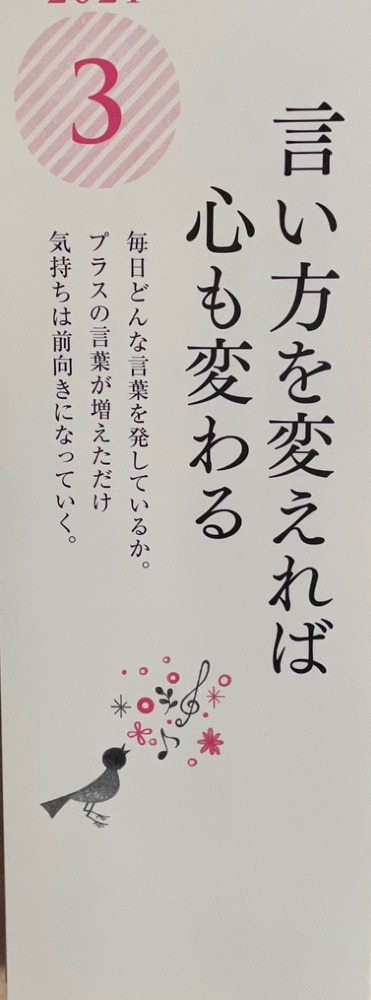 3
言い方を変えれば
心も変わる
毎日どんな言葉を発しているか。
プラスの言葉が増えただけ
気持ちは前向きになっていく。